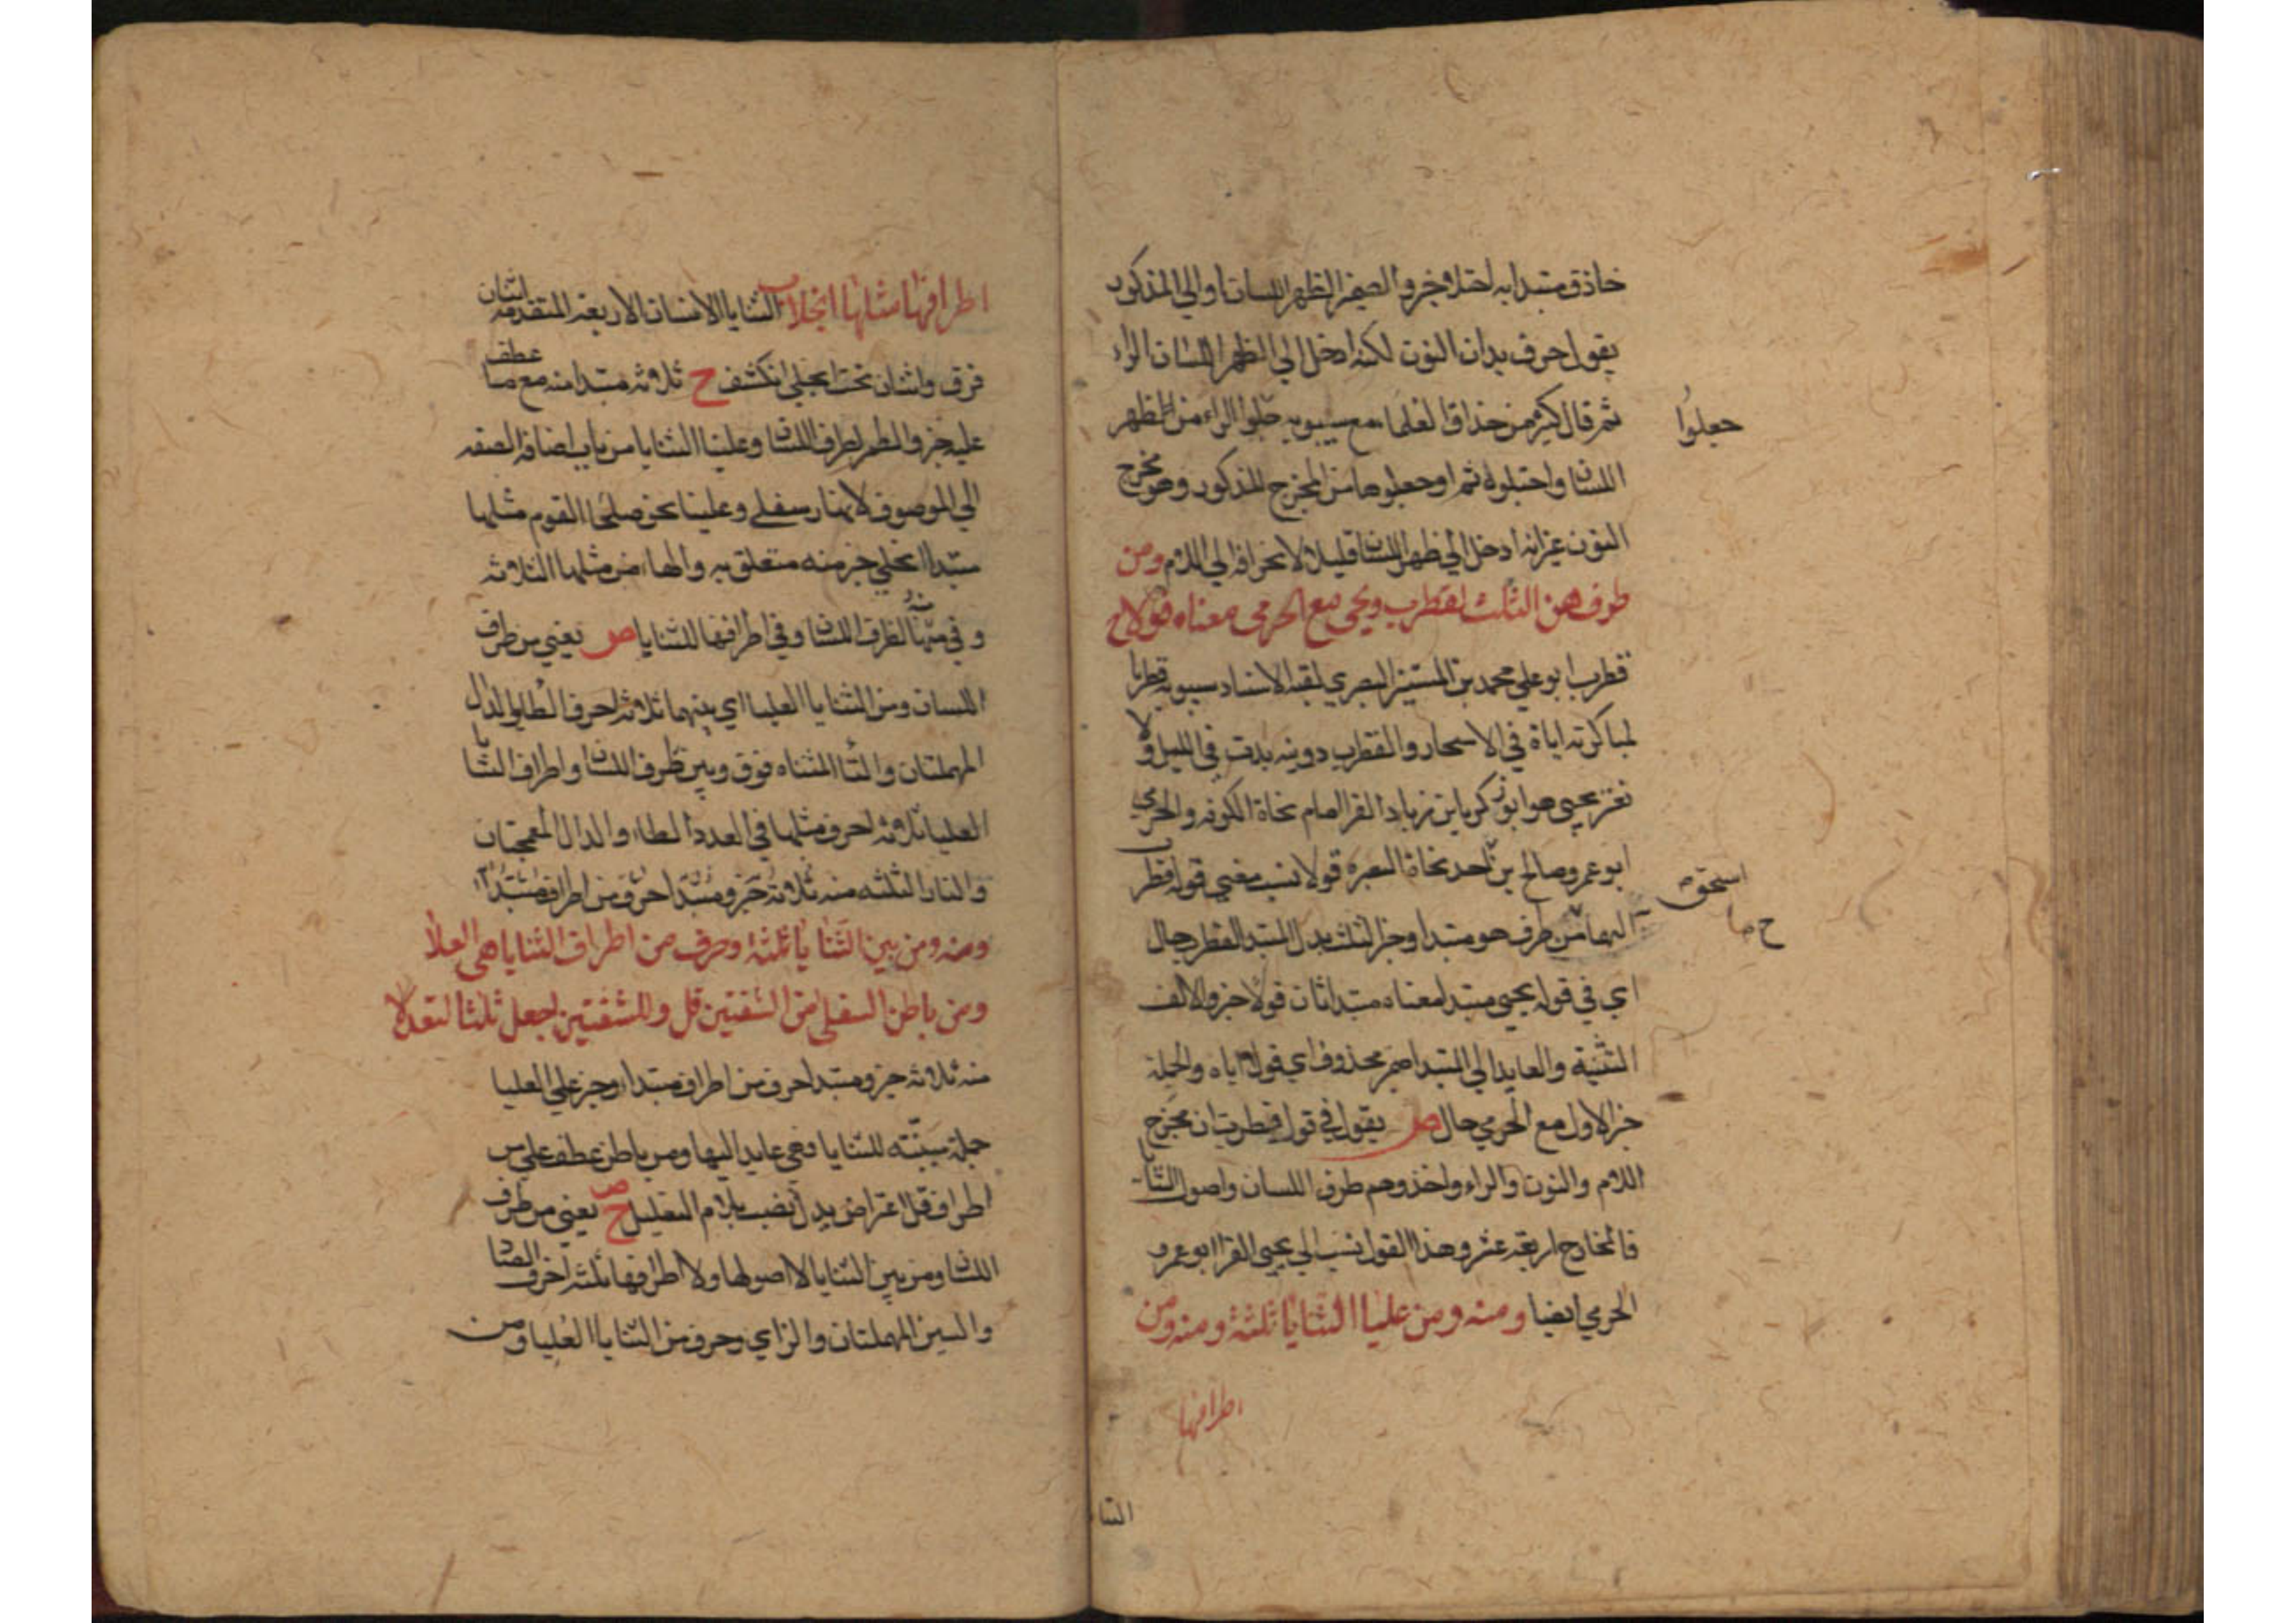 حاذق مبتدا به اجتلا خبر والضمير الظهر اللسان او الي المذكور
يقول حرف يدان النون لكنه ادخل الي الظهر اللسان الراء
ثم قال كثير من حذاق العلماء مع سيبويه جعلوا الراء من الظهر
جعلوا
اللسان واجتلوه ثم اوجعلوها من المخرج المذكور وهو مخرج
النون غير انه ادخل الي ظهر اللسان قليلا لانحرافه الي اللام ومن
طرف هن الثلث لقطرب ويحيى مع الجرمي معناه قولا ح
قطرب ابو علي محمد بن المستنير البصري لقبه الاستاد سيبويه قطربا
لمباكرته اياه في الاسحار والقطرب دويبه يدت في الليل ولا
تفتر يحيى هو ابو زكريا بن زياد الفرا امام نحاة الكوفه والجرمي
ابو عمرو صالح بن احد نحاة البصره قولا نسب معنى قوله قطرب
اسحق
اليهما من طرف هو مبتدا وخبر الثلث بدل المبتدا لقطرب حال
اي في قوله يحيى مبتدا معناه مبتدا ثان قولا خبر والالف
التثنية والعايد الي المبتدا ضمير محذوف اي قولا اياه والجملة
خبر الاول مع الجرمي حال ص يقول في قول قطرب ان مخرج
اللام والنون والراء واحد وهم طرف اللسان واصول الثنايا
فالمخارج اربعة عشر وهذا القول نسب الي يحيى الفرا ابو عمرو
الجرمي ايضا ومنه ومن عليا الثنايا ثلثة ومنه ومن
اطرافها
الثنا
اطرافها مثلها انجلا الثنايا الاسنان الاربعة المتقدمه اثنان
فوق واثنان تحت انجلي انكشف ح ثلاثه مبتدا منه مع ما عطف
عليه خبر والظهر لطرف اللسان وعليا الثنايا من باب اضافة الصفه
الي الموصوف لانها سفلي وعليا نحو صلحا القوم مثلها
مبتدا انجلي خبر منه متعلق به والهاء من مثلها الثلاثه
وفي منه لطرف اللسان وفي اطرافها للثنايا ص يعني من طرف
اللسان ومن الثنايا العليا اي بينهما ثلاثه احرف الطا والدال
المهملتان والتا المثناه فوق وبين طرف اللسان واطراف الثنايا
العليا ثلاثه احرف مثلها في العدد الظاء والدال المعجمتان
والثا المثلثه منه ثلاثه خبر ومبتدا حرف من اطراف مبتدا
ومنه ومن بين الثنايا ثلثة وحرف من اطراف الثنايا هي العلا
ومن باطن السفلي من الشفتين قل وللشفتين اجعل ثلثا لتعدلا
منه ثلاثه خبر ومبتدا حرف من اطراف مبتدا وخبر علي العليا
جملة مبينته للثنايا فهي عايد اليها ومن باطن عطف علي من
اطراف قل اعتراض بدل نصب بلام التعليل ح ص يعني من طرف
اللسان ومن بين الثنايا لا اصولها ولا اطرافها ثلثه احرف الصاد
والسين المهملتان والزاي وحرف من الثنايا العليا ومن